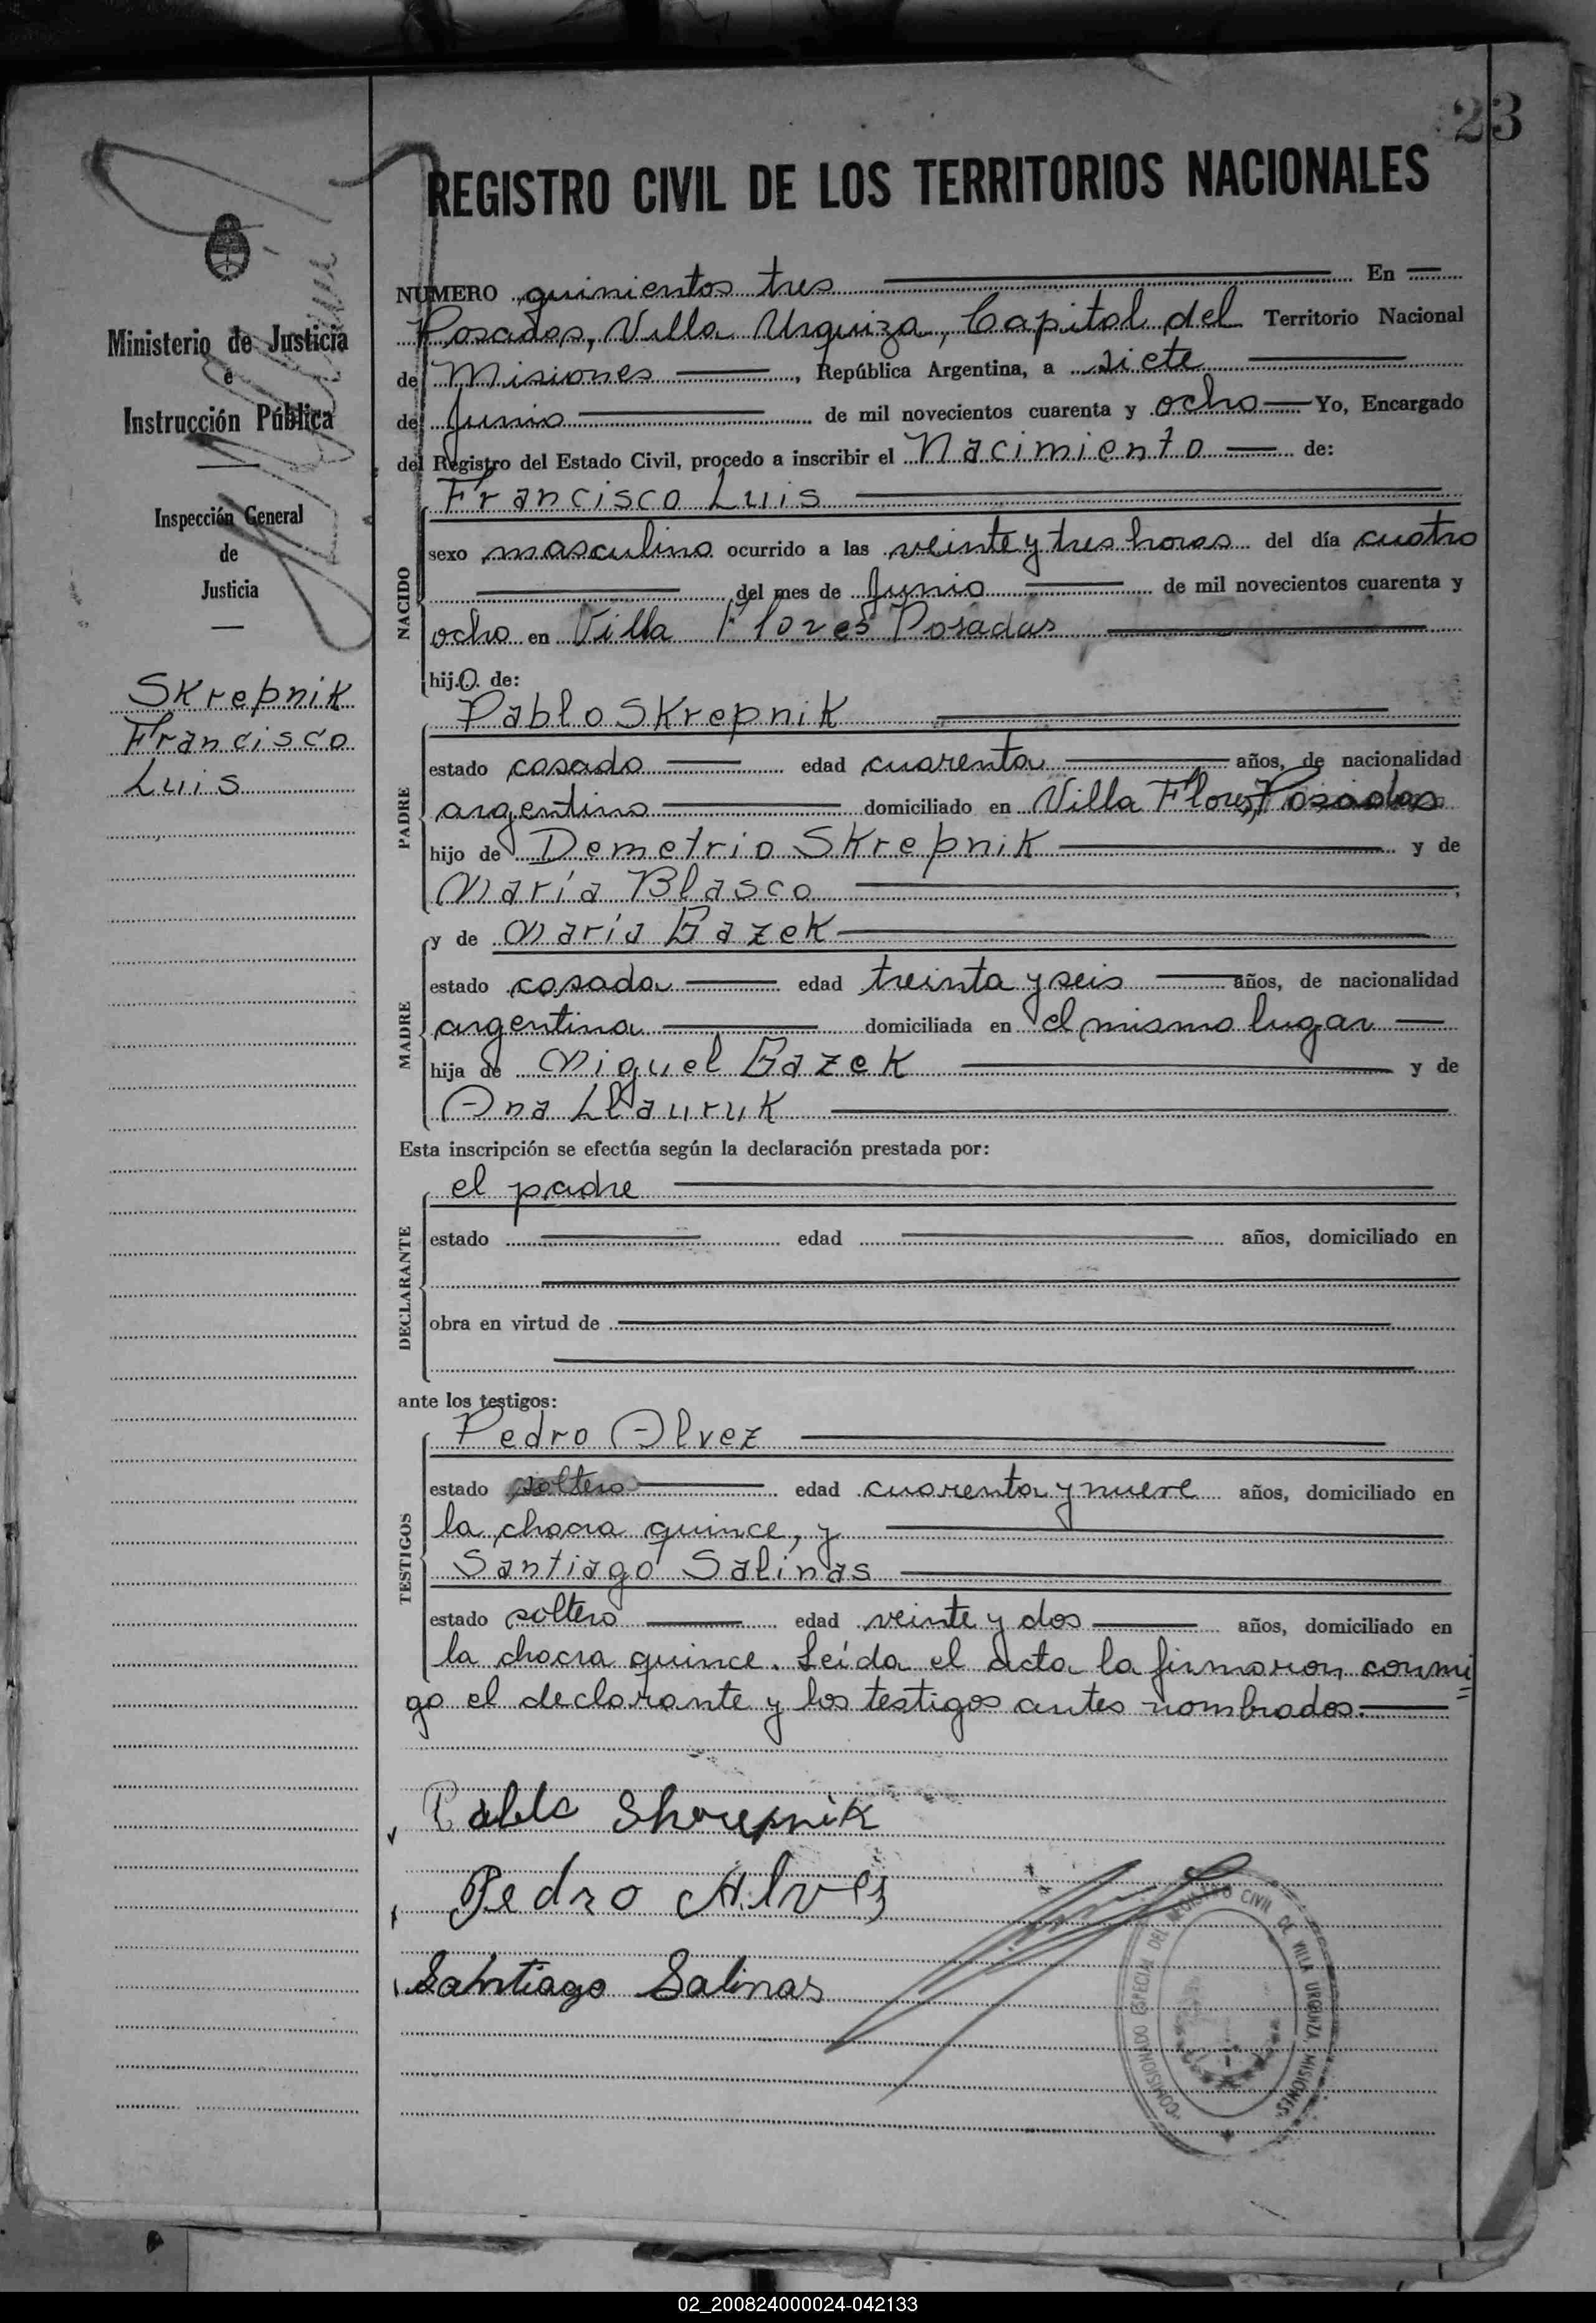 23
REGISTRO CIVIL DE LOS TERRITORIOS NACIONALES
Ministerio de Justicia
e
Instrucción Pública
Inspección General
de
Justicia
Skrepnik
Francisco
Luis
NUMERO quinientos tres En
Posadas, Villa Urquiza, Capital del Territorio Nacional
de Misiones, República Argentina, a siete
de Junio de mil novecientos cuarenta y ocho Yo, Encargado
del Registro del Estado Civil, procedo a inscribir el Nacimiento de:
NACIDO
Francisco Luis
sexo masculino ocurrido a las veinte y tres horas del día cuatro
del mes de Junio de mil novecientos cuarenta y
ocho en Villa Flores Posadas
hijo de:
PADRE
Pablo Skrepnik
estado casado edad cuarenta años, de nacionalidad
argentino domiciliado en Villa Flores, Posadas
hijo de Demetrio Skrepnik y de
María Blasco,
MADRE
y de María Gazek
estado casada edad treinta y seis años, de nacionalidad
argentina domiciliada en el mismo lugar
hija de Miguel Gazek y de
Ana
Esta inscripción se efectúa según la declaración prestada por:
DECLARANTE
el padre
estado edad años, domiciliado en
obra en virtud de
ante los testigos:
TESTIGOS
Pedro Alvez
estado soltero edad cuarenta y nueve años, domiciliado en
la chacra quince, y
Santiago Salinas
estado soltero edad veinte y dos años, domiciliado en
la chacra quince. Leída el acta la firmaron conmi=
go el declarante y los testigos antes nombrados.
Pablo
Pedro Alvez
Santiago Salinas
COMISIONADO ESPECIAL DEL REGISTRO CIVIL DE VILLA URQUIZA, MISIONES
02_200824000024-042133